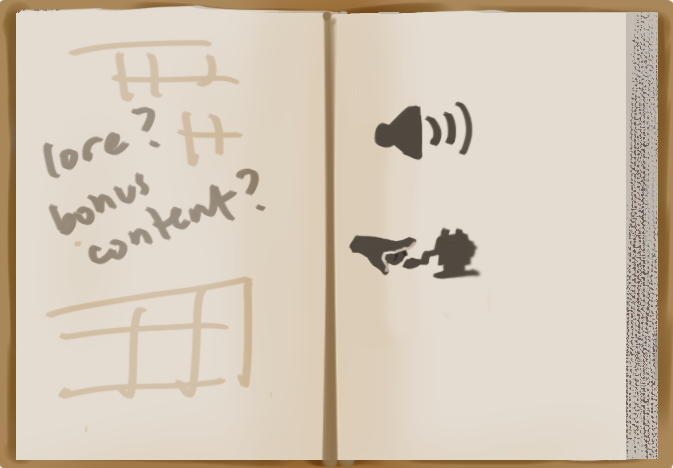 lore?
bonus
content?